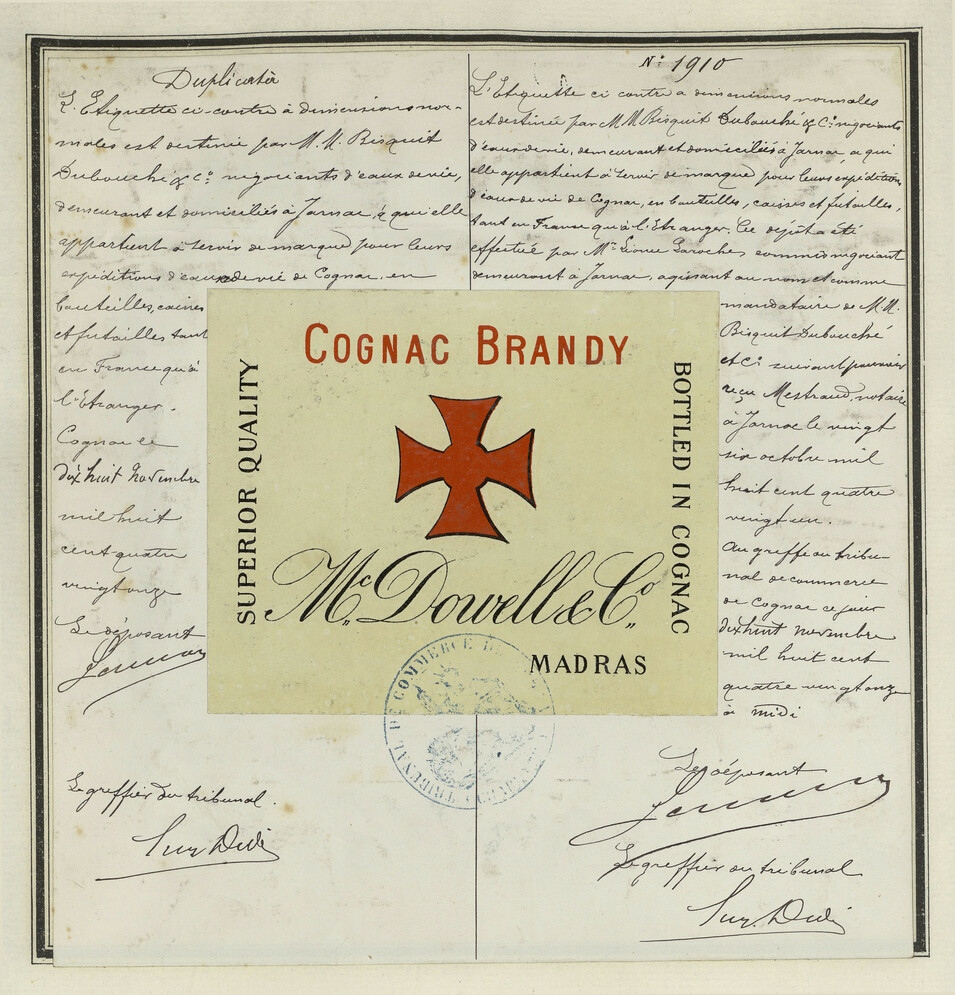 Duplicata
L'Etiquette ci-contre à dimensions nor-
males est destinée par M.M. Bisquit
Dubouché & Cº. négociants d'eaux de vie,
demeurant et domiciliés à Jarnac, à qui elle
appartient à servir de marque pour leurs
expéditions d'eaux de vie de Cognac, en
bouteilles, caisses
et futailles tant
en France qu'à
l'étranger.
Cognac le
dix huit novembre
mil huit
cent quatre
vingt onze
Le déposant
Le greffier du tribunal.
Nº 1910
L'Etiquette ci contre a dimensions normales
est destinée par M M Bisquit Dubouché & Cº négociants
d'eaux de vie, demeurant et domiciliés à Jarnac, a qui
elle appartient à servir de marque pour leurs expéditions
d'eaux de vie de Cognac, en bouteilles, caisses et futailles,
tant en France qu'à l'Etranger. Ce dépôt a été
effectué par Mr Laroche commis négociant
demeurant à Jarnac, agissant au nom et comme
mandataire de M.M.
Bisquit Dubouché
et Cº suivant pouvoir
reçu Mestraud, notaire
à Jarnac le vingt
six octobre mil
huit cent quatre
vingt un.
Au greffe du tribu-
nal de commerce
de Cognac ce jour
dix huit novembre
mil huit cent
quatre vingt onze
à midi
Le déposant
Le greffier du tribunal
COGNAC BRANDY
SUPERIOR QUALITY
BOTTLED IN COGNAC
Mc. Dowell & Co.,
MADRAS
TRIBUNAL DE COMMERCE